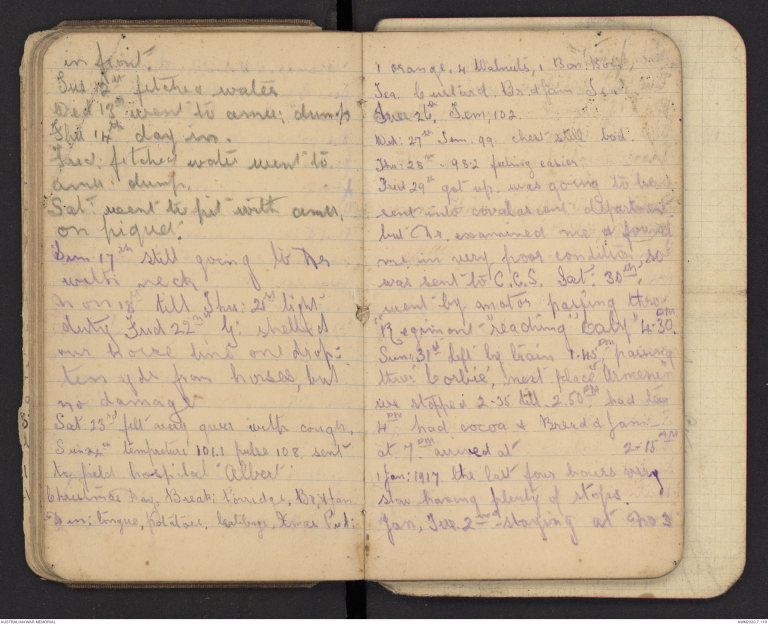 in front.
Tues 12th fetched water
Wed 13th went to ammu; dump
Thu 14th day in.
fetched water went to
ammu dump.
Sat: went to pit with ammu,
on piquet.
Sun 17th still going to Dr
with neck
Mon 18th till Thu: 21st light
duty Frid 22nd G: shelled
our horse line one drop:
ten yds from horses, but
no damage
Sat 23rd felt very queer with cough,
Sun 24th tempreture 101.1 pulse 108. sent
to field hospital "Albert"
Christmas Day, Break: Porridge, Br, & Jam
Din; tongue, Potatoes, Cabbage, Xmas Pud:
1 orange, 4 Walnuts, 1 Bon:
Tea. Custard Br & Jam Tea
Tues 26th, Tem, 102.
Wed: 27th Tem. 99. chest still bad.
Thu: 28th 98.2 feeling easier
Frid 29th got up. was going to be
sent into covalascent department
but Dr. examined me & found
me in very poor condition, so
was sent to C.C.S. Sat: 30th,
went by motor passing thro
reaching 4-30 PM
Sun: 31st left by train 1.45 PM passing
thro' Corbie, next place
we stopped 2-35 till 2.50 PM had tea
4 PM had cocoa & Bread & Jam
at 7 PM arrived at 2-15 AM
1 Jan: 1917. the last four hours very
slow having plenty of stops.
Jan, Tue. 2nd staying at No 3
AUSTRALIAN WAR MEMORIAL